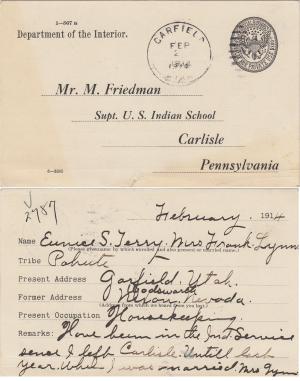 5-567 a
Department of the Interior.
GARFIELD
FEB
UTAH
Mr. M. Friedman
Supt. U. S. Indian School
Carlisle
Pennsylvania
2787
February, 1914
Name Eunice S. Terry. Mrs Frank Lynn
(Please give name by which enrolled and also present or married name.)
Tribe Pahute
Present Address Garfield, Utah.
Wadsworth
Former Address Nixon, Nevada.
(Address from which on leaving you last.)
Present Occupation Housekeeping.
Remarks: Have been in the Ind Service
since I left Carlisle. Untill last
year. When I was married. Mrs Lynn